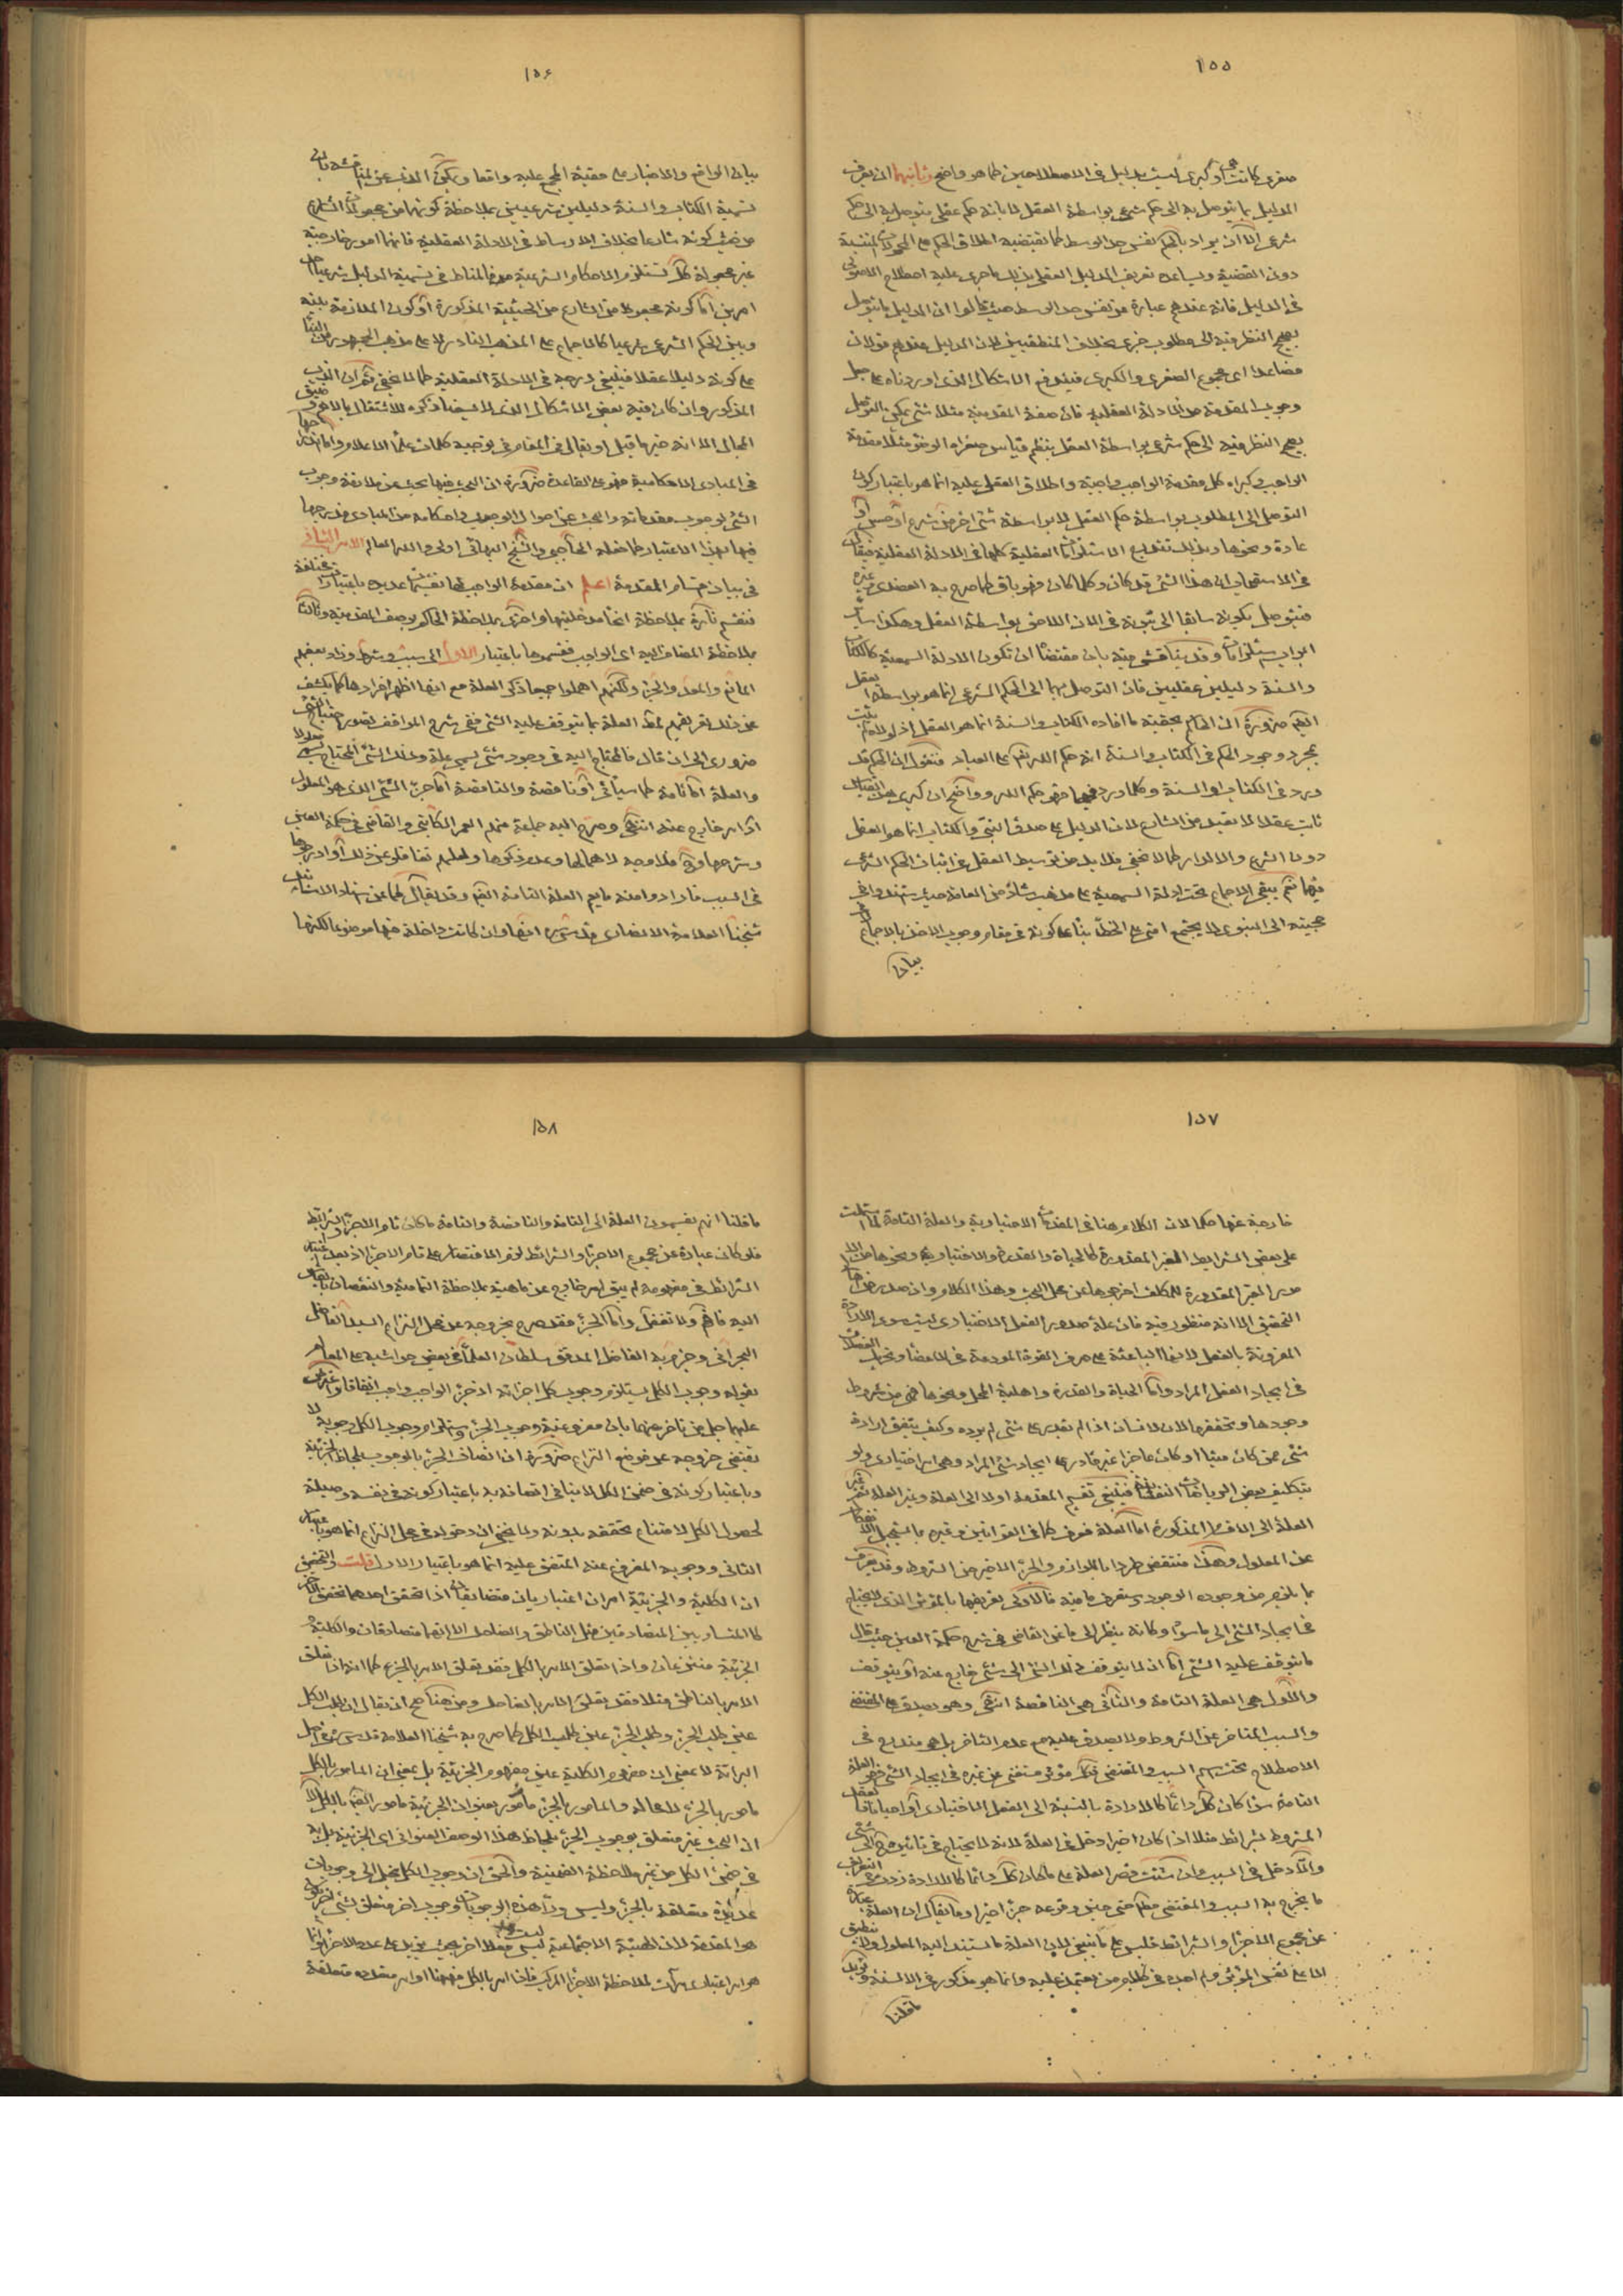 ١٥٥
صغرى كانت او كبرى ليست بدليل فى الاصطلاحين كما هو واضح وثانيهما ان يعرف
الدليل بما يتوصل به الى حكم شرعى بواسطة العقل لا بانه حكم عقلى يتوصل به الى حكم
شرعى الا ان يراد بالحكم نفس حد الوسط كما يقتضيه اطلاق الحكم على المحمولات المنتسبة
دون القضية ويساعده تعريف الدليل العقلى بذلك ما جرى عليه اصطلاح الاصولى
فى الدليل فانه عندهم عبارة عن نفس حد الوسط حيث قالوا ان الدليل ما يتوصل
بصحيح النظر فيه الى مطلوب خبرى بخلاف المنطقيين لان الدليل عندهم قولان
فصاعدا اى مجموع الصغرى والكبرى فيندفع الاشكال الذى اوردناه على جعل
وجوب المقدمة من الادلة العقلية فان صفة المقدمية مثلا شئ يمكن التوصل
بصحيح النظر فيه الى حكم شرعى بواسطة العقل بنظم قياس صغراه الوضوء مثلا مقدمة
الواجب وكبراه كل مقدمة الواجب واجبة واطلاق العقلى عليه انما هو باعتبار كون
التوصل الى المطلوب بواسطة حكم العقل لا بواسطة شئ اخر من شرع او حس او
عادة ونحوها وبذلك تندرج الاستلزامات العقلية كلها فى الادلة العقلية فيقال
فى الاستصحاب ان هذا الشئ قد كان وكلما كان فهو باق كما صرح به العضدى وغيره
فيتوصل بكونه سابقا الى ثبوته فى الان اللاحق بواسطة العقل وهكذا سائر
ابواب الاستلزامات وقد يناقش فيه بان مقتضاه ان تكون الادلة السمعية كالكتاب
والسنة دليلين عقليين فان التوصل بهما الى الحكم الشرعى انما هو بواسطة العقل
ايضا ضرورة ان الحاكم بحقية ما افاده الكتاب والسنة انما هو العقل اذ لولاه لم يثبت
بمجرد وجود الحكم فى الكتاب والسنة انه حكم الله تعالى على العباد فنقول ان الحكم قد
ورد فى الكتاب او السنة وكلما ورد فيهما فهو حكم الله وواضح ان كبرى هذا القياس
ثابت عقلا لا تعبد من الشارع لان الدليل على صدق النبى والكتاب انما هو العقل
دون الشرع والا لدار كما لا يخفى فلابد من توسيط العقل فى اثبات الحكم الشرعى
بهما نعم يبقى الاجماع تحت ادلة السمعية على مذهب شاذ من العامة حيث استندوا فى
حجيته الى النبوى لا يجتمع امتى على الخطأ بناء على كونه فى مقام وجوب الاخذ بالاجماع لا فى
بيان
١٥٦
بيان الواقع والاخبار على حقية المجمع عليه واقعا ويمكن الذب عن المناقشة بان
تسمية الكتاب والسنة دليلين شرعيين بملاحظة كونهما من مجعولات الشارع
من حيث كونه شارعا بخلاف الاوساط فى الادلة العقلية فانها امور خارجية
غير مجعولة كك تستلزم الاحكام الشرعية فالمناط فى تسمية الدليل شرعيا احد
امرين اما كونه مجعولا من الشارع من الحيثية المذكورة او كون الملازمة بينه
وبين الحكم الشرعى شرعيا كالاجماع على المذهب النادر لا على مذهب الجمهور من البناء
على كونه دليلا عقلا فينبغى درجه فى الادلة العقلية كما لا يخفى ثم ان الذب
المذكور وان كان فيه بعض الاشكال الذى لا يسعنا ذكره للاشتغال بالاهم وضيق
المجال الا انه خير ما قيل او يقال فى المقام فى توجيه كلمات علماء الاعلام واما ادراجها
فى المبادى الاحكامية فهو على القاعدة ضرورة ان البحث فيها بحث عن ملازمة وجوب
الشئ لوجوب مقدماته والبحث عن احوال الوجوب واحكامه من المبادى فدرجها
فيها بهذا الاعتبار كما فعله الحاجبى والشيخ البهائى اولى والله العالم الامر الثانى
فى بيان اقسام المقدمة اعلم ان مقدمة الواجب لها تقسيمات عديدة باعتبارات مختلفة
فتنقسم تارة بملاحظة انحاء مدخليتها واخرى بملاحظة الحاكم بوصف المقدمية وثالثا
بملاحظة المضاف اليه اى الواجب فقسموها باعتبار الاول الى سبب وشرط وزاد بعضهم
المانع والمعد والجزء ولكنهم اهملوا جميعا ذكر العلة مع انها اظهر افرادها كما يكشف
عن ذلك تعريفهم لمطلق العلة بما يتوقف عليه الشئ ففى شرح المواقف تصور احتياج الشئ
ضرورى الى ان قال فالمحتاج اليه فى وجود شئ يسمى علة وذلك الشئ المحتاج يسمى معلولا
والعلة اما تامة كما سيأتى او ناقصة والناقصة اما جزء الشئ الذى هو المعلول
او امر خارج عنه انتهى وصرح اليه جماعة منهم العمر الكاتبى والقاضى فى حكمة العين
وشرحها فلا وجه لاهمالها وعدم ذكرها ولعلهم تغافلوا عن ذلك او ادرجوها
فى السبب فارادوا منه ما يعم العلة التامة ايضا وقد يقال كما عن استاد الاساتيد
شيخنا العلامة الانصارى قدس سره انها وان كانت داخلة فيها موضوعا لكنها
١٥٧
خارجة عنها حكما لان الكلام هنا فى المقدمات الاختيارية والعلة التامة لما اشتملت
على بعض الشرايط الغير المقدورة كالحياة والقدرة والاختيارية ونحوها من الامور
الغير المقدورة للمكلف اخرجوها عن محل البحث وهذا الكلام وان صدر عن اهل
التحقيق الا انه منظور فيه فان علة صدور الفعل الاختيارى ليست سوى الارادة
المقرونة بالفعل لانها الباعثة على صرف القوة المودعة فى الاعضاء وتحريك العضلات
فى ايجاد الفعل المراد واما الحياة والقدرة واهلية المحل ونحوها فهى من شروط
وجودها وتحققها لان الانسان اذا لم يقدر على شئ لم يرده وكيف يتفق ارادة
شئ ممن كان ميتا او كان عاجزا غير قادر على ايجاد شئ المراد وهى امر اختيارى ولو
بتكليف بعض الرياضات النفسانية فينبغى تقسيم المقدمة اولا الى العلة وغير العلة ثم غير
العلة الى الاقسام المذكورة اما العلة فعرفت كما فى القوانين وغيره بما يستحيل انفكاكه
عن المعلول وهذا منتقض طردا باللوازم والجزء الاخير من الشروط وقد يعرف
بما يلزم من وجوده الوجود وستعرف ما فيه فالاولى تعريفها بالمؤثر الذى لا يحتاج
فى ايجاد الشئ الى ما سواه وكانه ينظر الى ما عن القاضى فى شرح حكمة العين حيث قال
ما يتوقف عليه الشئ اما ان لا يتوقف ذلك الشئ الى شئ خارج عنه او يتوقف
والاول هى العلة التامة والثانى هى الناقصة انتهى وهو يصدق على المقتضى
والسبب المتاخر عن الشروط ولا يصدق عليه مع عدم التاخر بل هو مندرج فى
الاصطلاح تحت اسم السبب والمقتضى فكل مؤثر مستغنى عن غيره فى ايجاد الشئ فهو العلة
التامة سواء كان كك دائما كالارادة بالنسبة الى الفعل الاختيارى او احيانا كالفعل
المشروط بشرائط مثلا اذا كان اخيرا دخل فى العلة لانه لا يحتاج فى تاثيره ح الى شئ
والا دخل فى السبب وان شئت حصر العلة على ما كان كك دائما كالارادة زدت فى التعريف
ما يخرج به السبب والمقتضى مطلقا حتى حين وقوعه جزءا اخيرا وما يقال ان العلة عبارة
عن مجموع الاجزاء والشرائط فليس على ما ينبغى لان العلة ما يستند اليه المعلول ولا ينطبق
الا على نفس المؤثر ولم اجده فى كلام من يعتمد عليه وانما هو مذكور فى الالسنة ويؤيد
ما قلنا
١٥٨
ما قلنا انهم يقسمون العلة الى التامة والناقصة والتامة ما كان تام الاجزاء والشرائط
فلو كان عبارة عن مجموع الاجزاء والشرائط لزم الاقتصار على تام الاجزاء اذ بعد اعتبار
الشرائط فى مفهومه لم يبق امر خارج عن ماهيته بملاحظة التمامية والنقصان بالقياس
اليه فافهم ولا تغفل واما الجزء فقد صرح بخروجه عن محل النزاع السيد الفاضل
البحرانى وجزم به الفاضل المدقق سلطان العلماء فى بعض حواشيه على المعالم
بقوله وجوب الكل يستلزم وجوب كل اجزائه اذ جزء الواجب واجب اتفاقا واعترض
عليهما جل من تاخر عنهما بان مفروغية وجوب الجزء واستلزام وجوب الكل وجوبه لا
يقتضى خروجه عن موضع النزاع ضرورة ان اتصاف الجزء بالوجوب بلحاظ الجزئية
وباعتبار كونه فى ضمن الكل لا ينافى اتصافه به باعتبار كونه فى نفسه وصيلة
لحصول الكل لامتناع تحققه بدونه ولا يخفى ان دخوله فى محل النزاع انما هو باعتبار
الثانى ووجوبه المفروغ عنه المتفق عليه انما هو باعتبار الاول قلت والتحقيق
ان الكلية والجزئية امران اعتباريان متضايفان اذا تحقق احدهما تحقق الاخر
كالمتساويين المتصادقين مثل الناطق والضاحك الا انهما متصادقان والكلية
الجزئية منتزعان واذا تعلق الامر بالكل فقد تعلق الامر بالجزء كما انه اذا تعلق
الامر بالناطق مثلا فقد تعلق الامر بالضاحك ومن هنا صح ان يقال ان طلب الكل
عين طلب الجزء وطلب الجزء عين طلب الكل كما صرح به شيخنا العلامة قدس سره فى اصل
البرائة لا بمعنى ان مفهوم الكلية عين مفهوم الجزئية بل بمعنى ان المامور بالكل
مامور بالجزء لا محالة والمامور بالجزء مامور بعنوان الجزئية مامور ايضا بالكل الا
ان البحث غير متعلق بوجوب الجزء بلحاظ هذا الوصف العنوانى اى الجزئية بل به
فى ضمن الكل من غير ملاحظة الضمنية والحق ان وجوب الكل ينحل الى وجوبات
عديدة متعلقة بالجزء وليس وراء هذه الوجوبات وجوب اخر متعلق بشئ اخر يكون
هو المقدمة لان الهيئة الاجتماعية ليست فعلا اخر بحيث يزيد على عدد الاجزاء وانما
هو امر اعتبارى مرآت لملاحظة الاجزاء المركب فاذا امر بالكل فههنا اوامر متعددة متعلقة